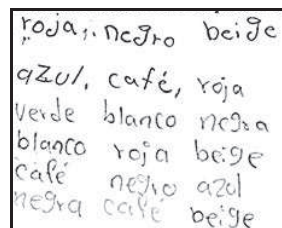 roja, negro beige
azul, café, roja
verde blanco negra
blanco roja beige
café negro azul
negra café beige